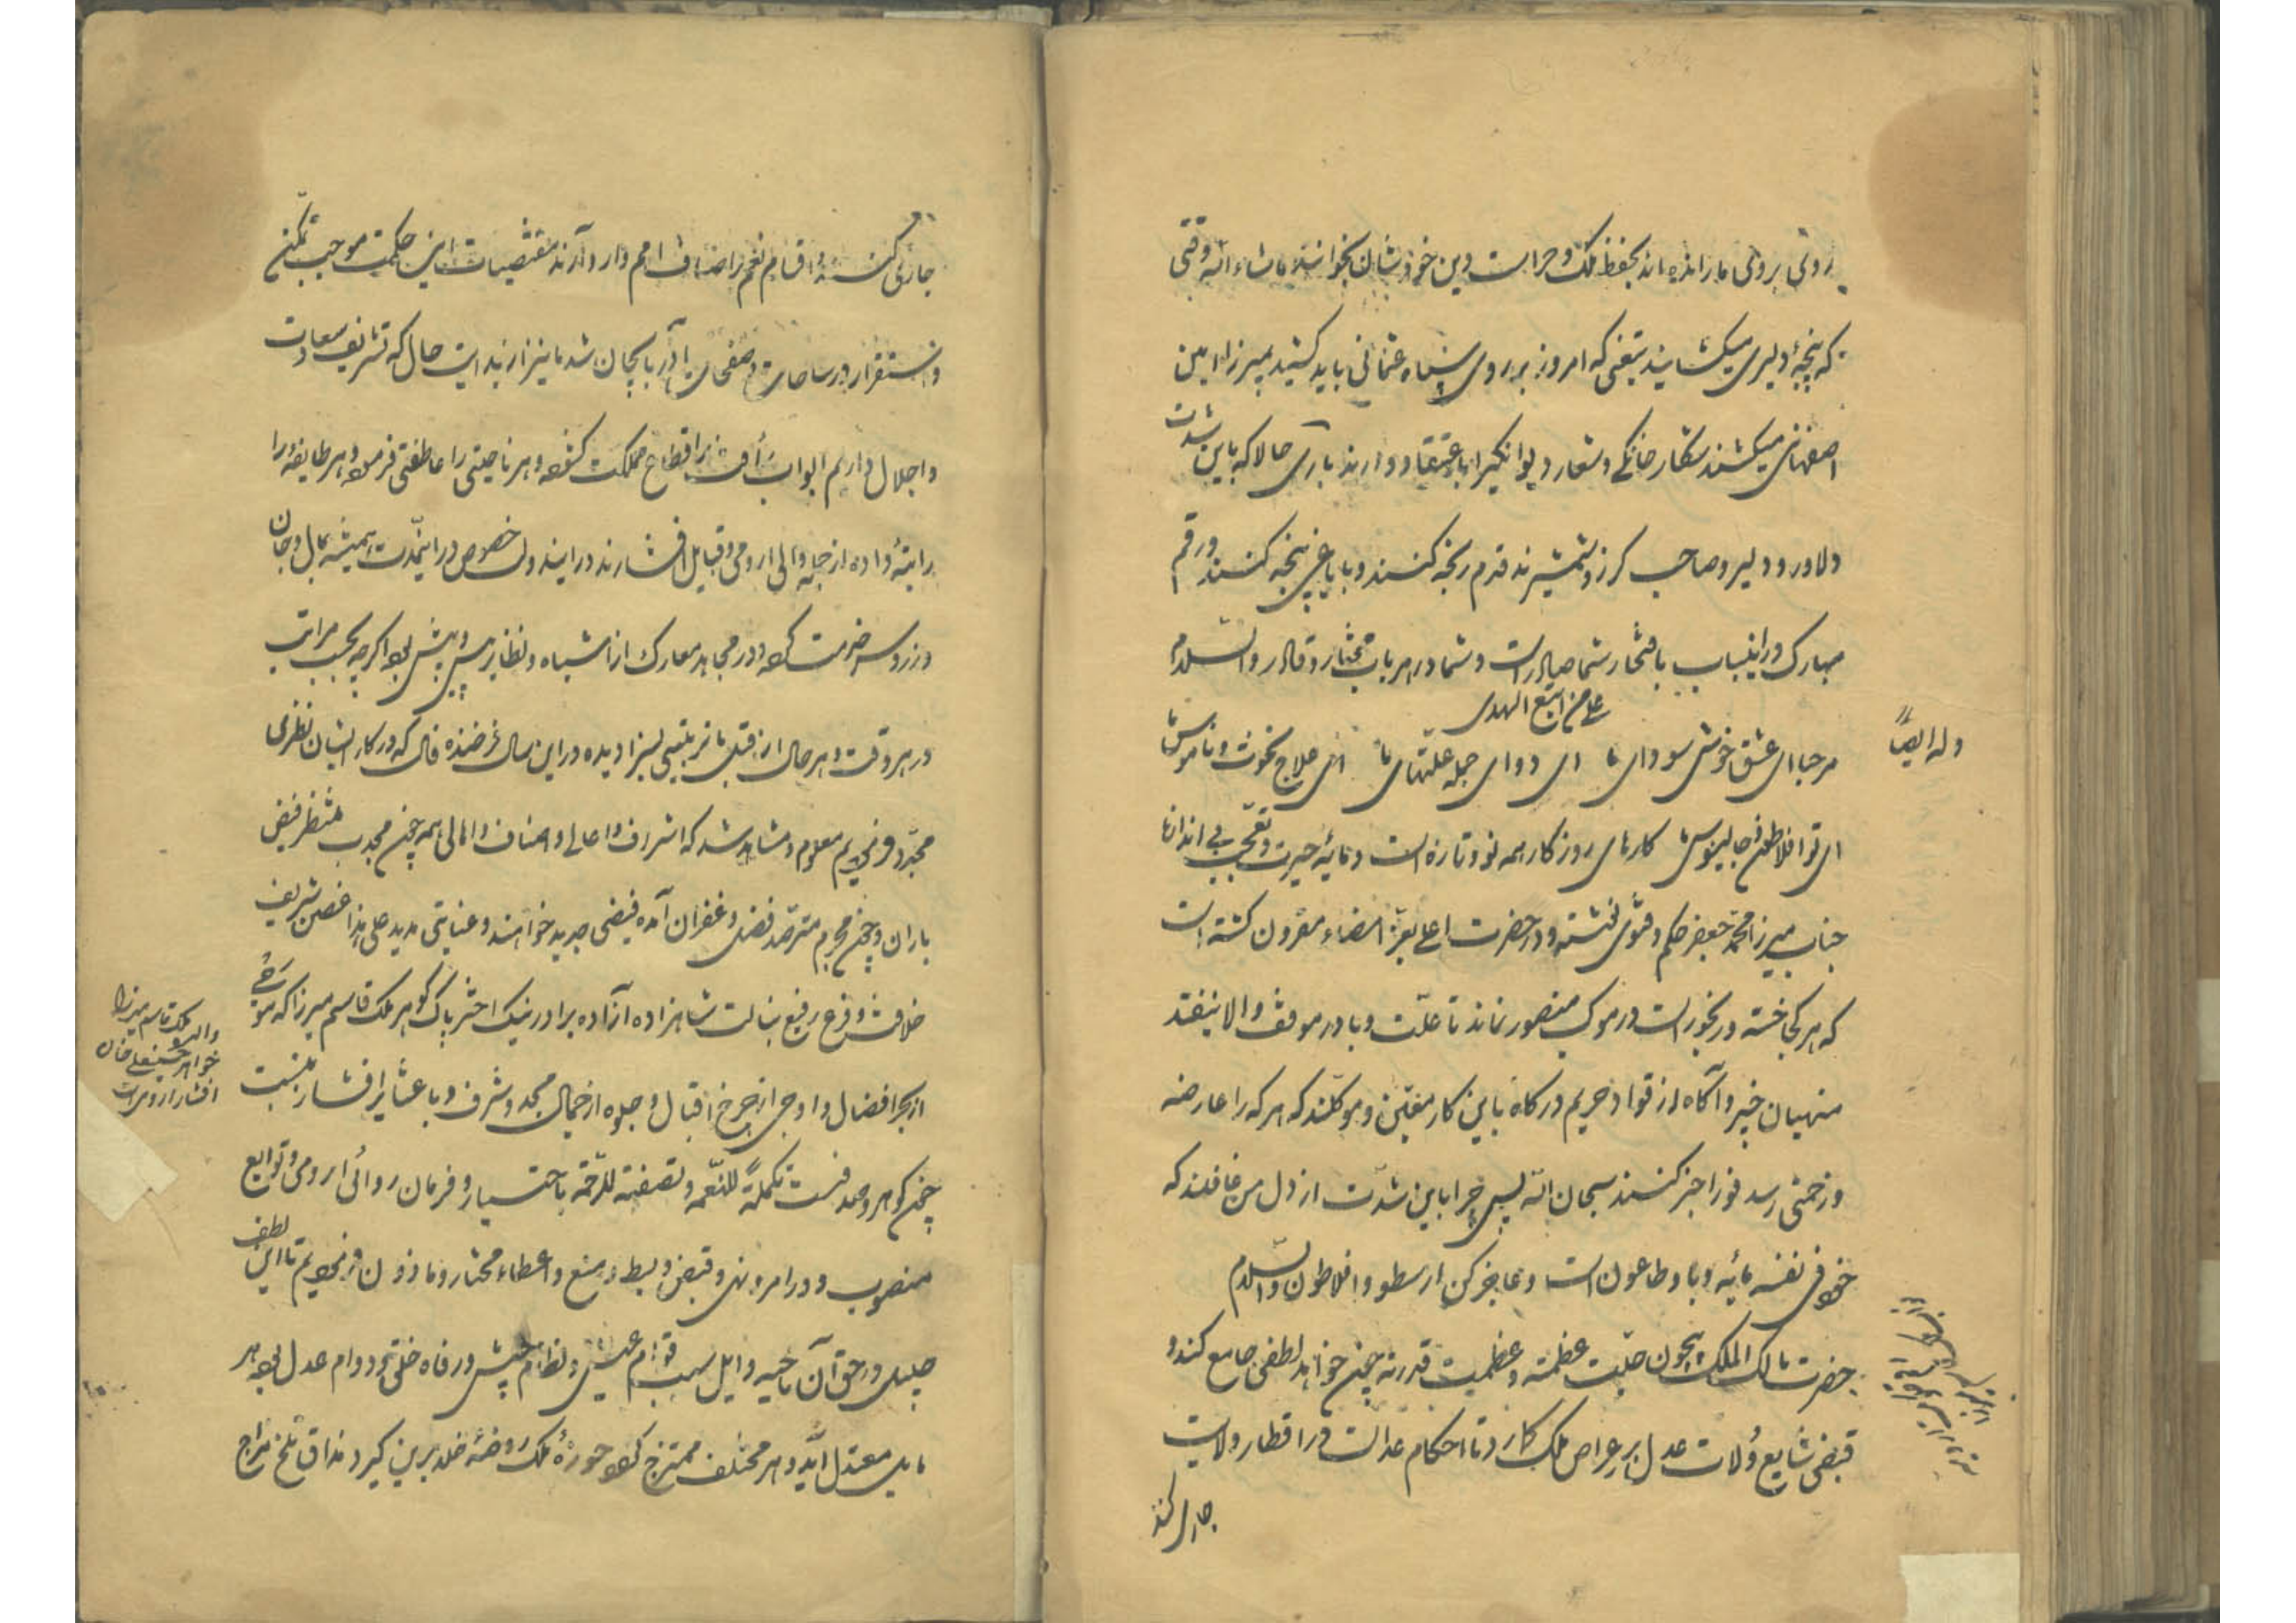 روئی بروئی ما رانده اند بحفظ ملک و حراست دین خود شان نخوانند ماشاء الله وقتی
که پنجهٔ دلیری میکشایند تیغی که امروز بر روی سپاه عثمانی باید کشید بمیرزا امین
اصفهانی میکشند شکار خانگی و شعار دیوانگیرا باعتقاد دارند باری حالا که باین شدت
دلاور و دلیر و صاحب کرز و شمشیرند قدم رنجه کنند و با یاغی پنجه کنند و رقم
مبارک در اینباب بافتخار شما صادر است و شما در هر باب مختار و قادر والسلام
علی من اتبع الهدی
وله ایضاً
مرحبا ای عشق خوش سودای ما ای دوای جمله علتهای ما ای علاج نخوت و ناموس ما
ای تو افلاطون و جالینوس ما کارهای روزکار همه نو و تازه است و مایهٔ حیرت و تعجب بی اندازه
جناب میرزا محمد جعفر حکم و فتوی نوشته و در حضرت اعلی بعزّ امضاء مقرون کشته است
که هر کجا خسته و رنجور است در موکب منصور نماند تا علّت وبا در موقف والا نیفتد
منهیان خبیر و آکاه از قواد حریم درکاه باین کار معیّن و موکلند که هر که را عارضه
و زحمتی رسد فوراً خبر کنند سبحان الله پس چرا باین شدّت از دل من غافلند که
خود فی نفسه مایهٔ وبا و طاعون است و عاجز کن ارسطو و افلاطون والسلام
حضرت مالک الملک بیچون جلّت عظمته و عظمت قدرته چون خواهد لطفی جامع کند و
فیضی شایع وُلات عدل بر عراص ملک کمارد تا احکام عدالت در اقطار ولایت
جاری کند
جاری کنند و اقسام نعم بر اصناف امم وارد آرند مقتضیات این حکمت موجب تمکّن
و استقرار در ساحات و صفحات آذربایجان شد ما نیز از بدایت حال که تشریف سعادت
و اجلال داریم ابواب رأفت بر اقطاع مملکت کشوده و هر ناحیتی را عاطفتی فرموده و هر طایفه را
رابتهٔ داده از جمله والی ارومی و قبایل افشارند در ایندولت خصوص در اینمدت همیشه بمال و جان
و زر و سر خدمت کرده و در مجاهد معارک از اشباه و نظایر پس و پیش بوده اکرچه بحسب مراتب
در هر وقت و هر حال از قبل ما تربیتی بسزا دیده در این سال فرخنده فال که در کار ایشان نظری
مجدّد فرمودیم معلوم و مشاهد شد که اشراف و اعالی و اصناف و اهالی همه چون مجدب منتظر فیض
باران و چون مجرم مترصّد فضل و غفران آمده فیضی جدید خواهند و عنایتی مدید علی هذا غصن شریف
خلافت و فرع رفیع بسالت شاهزاده آزاده برادر نیک اختر پاک کوهر ملک قاسم میرزا که موجی
از بحر افضال و اوجی از چرخ اقبال و جلوه از جمال مجد و شرف و با عشایر افشار بنسبت
والده ملک قاسم میرزا
خواهر حسینعلی خان
افشار ارومی است
چون کوهر و صدفست تکملةً للنعمه و تصفیةً للرّحمه باختیار و فرمان روائی ارومی و توابع
منصوب و در امر و نهی و قبض و بسط و منع و اعطاء مختار و ماذون فرمودیم تا این لطف
جلیل در حق آن ناحیه و ایل سبب قوام عیش و نظام جیش و رفاه خلق و دوام عدل بوده هر
مایل معتدل آید و هر مختلف ممتزج کردد حوزهٔ ملک روضهٔ خلد برین کیرد مذاق تلخ مزاج